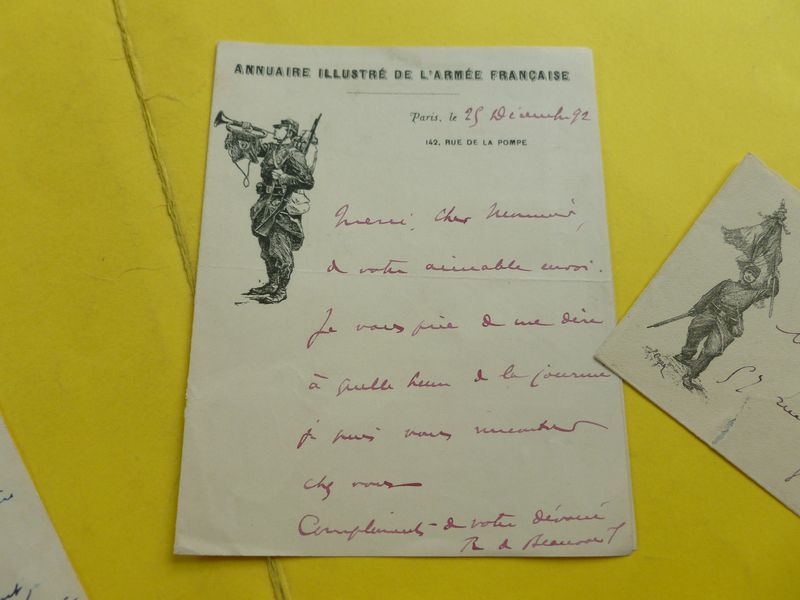 ANNUAIRE ILLUSTRÉ DE L'ARMÉE FRANÇAISE
Paris, le 25 Décembre 92
142, RUE DE LA POMPE
Merci, cher Monsieur,
de votre aimable envoi.
Je vous prie de me dire
à quelle heure de la journée
je puis vous rencontrer
chez vous
Compliments de votre dévoué
R de Beauvoir
57 rue